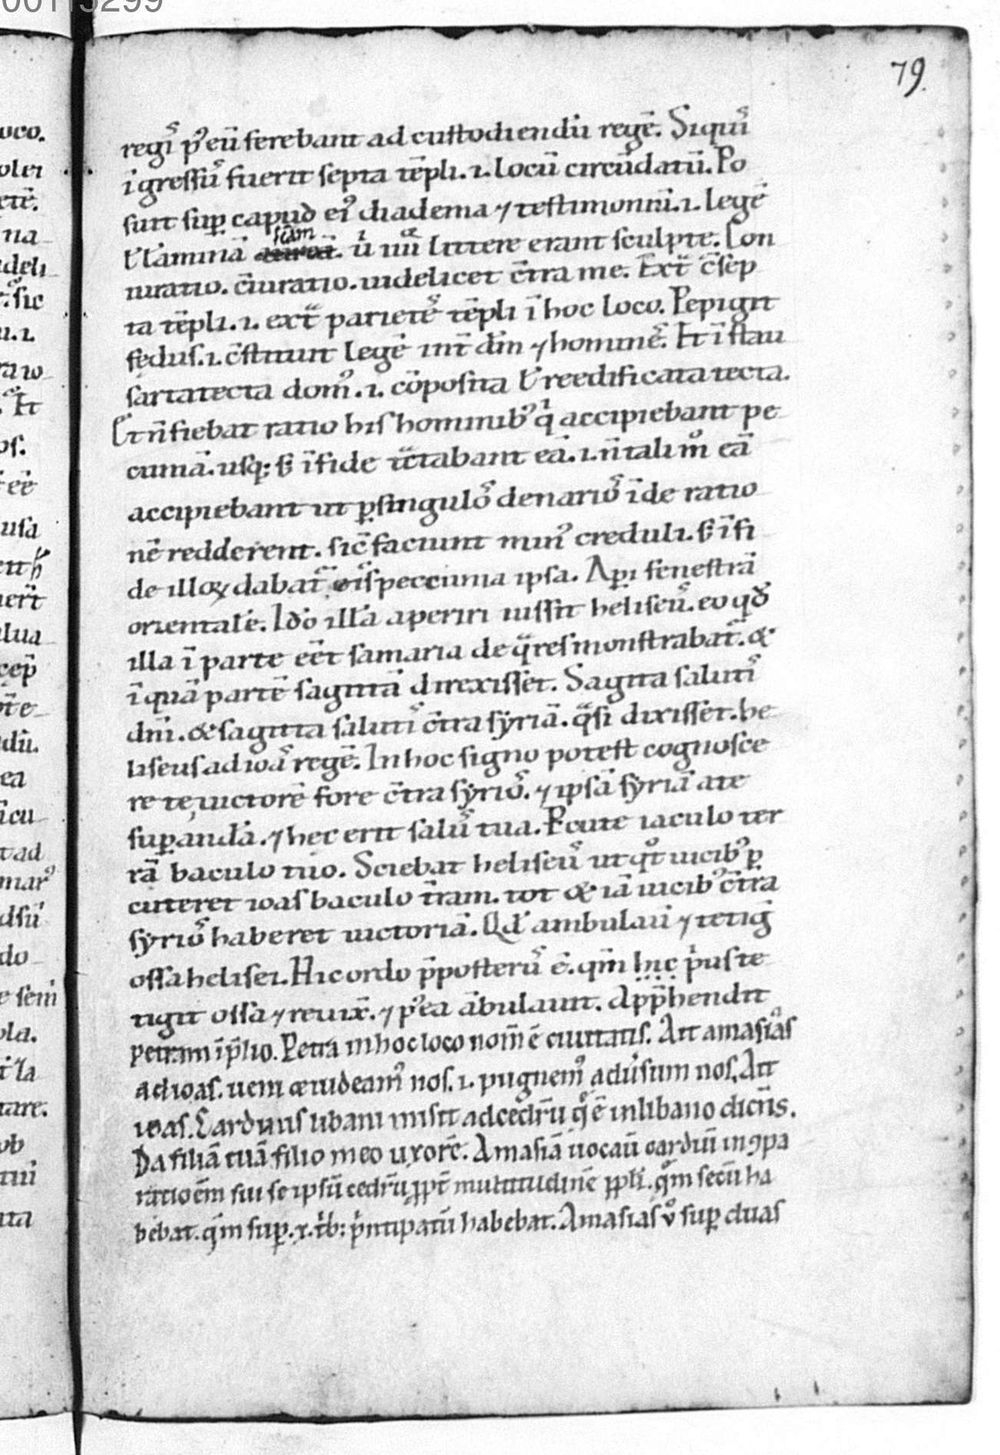 79.
regiˢ pˀ eū ferebant ad custodiendū regē. Siquiˢ
īgressuˢ fuerit septa tēpli .i. locū circūdatū. Po
suit sup̱ capud eiˀ diadema ⁊ testimoniū .i. legē
ł lāminā scām. ū iiiiᵒʳ littere erant sculpte. Con
iuratio. c̄iuratio. uidelicet c̄tra me. Ext̄ c̄sep
ta tēpli .i. ext̄ parietēˢ tēpli ī hoc loco. Pepigit
fędus .i. c̄stituit legē int̄ dm̄ ⁊ hominēˢ. Et īstau
sartatecta domˀ .i. cōposita ł reedificata tecta.
Et n̄ fiebat ratio his hominibˀ qⁱ accipiebant pe
cuniā. usq; s; ī fide t̄ctabant eā .i. n̄ tali mᵒ eā
accipiebant ut p̱ singulōˢ denariōˢ īde ratio
nē redderent. sic̄ faciunt minˀ creduli. s; ī fi
de illoꝝ dabat̄ oīs peccunia ipsa. Ap̱i fenestrā
orientalē. Idō illā aperiri iussit heliseuˢ. eo qđ
illa ī parte eēt samaria de q̄ res monstrabat̄. &
ī quā partē sagittā direxissēt. Sagitta salutiˢ
dn̄i. & sagitta salutiˢ c̄tra syriā. q̄si dixissēt. he
liseus ad ioāˢ regē. In hoc signo potest cognosce
re te uictorē fore c̄tra syriōˢ. ⁊ ipsā syriā a te
sup̱andā. ⁊ hec erit saluˢ tua. Pcute iaculo ter
rā baculo tuo. Sciebat heliseuˢ ut qᵒt uicibˀ p̱
cuteret ioas baculo t̄ram. tot & iā uicibˀ c̄tra
syriōˢ haberet uictoriā. Qđ ambulauī ⁊ tetiḡ
ossa helisei. Hic ordo p̄posteruˢ ē. qm̄ hic p̄us te
tigit ossa ⁊ reuix̄. ⁊ pˀea ābulauit. App̄hendit
petram ī p̄lio. Petra in hoc loco nom̄ ē ciuitatis. Ait amasias
ad ioas. ueni & uideamˀ nos .i. pugnemˀ aduˢsum nos. Ait
ioas. Carduus libani misit ad cedrū q̄ ē in libano dicēs.
Da filiā tuā filio meo uxorē. Amasiā uocauī carduū in ꝯpa
ratiōem sui se ipsū cedrū pp̄t multitudinē pp̄li. qm̄ secū ha
bebat. qm̄ sup̱ .x. tb; p̄ntipatū habebat. Amasias ū sup̱ duas